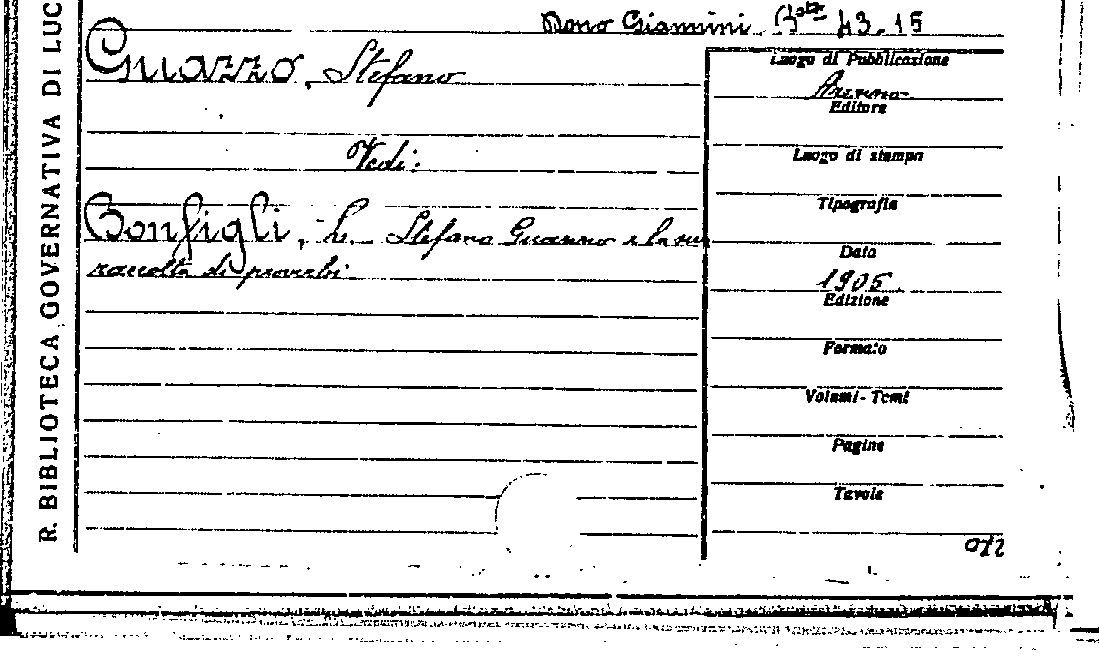 R. BIBLIOTECA GOVERNATIVA DI LUC
Dono Giannini B.ta 43.15
Guazzo, Stefano
Vedi:
Bonfigli, L. Stefano Guazzo e la sua
raccolta di proverbi.
Luogo di Pubblicazione
Arezzo
Editore
Luogo di stampa
Tipografia
Data
1905
Edizione
Formato
Volumi - Tomi
Pagine
Tavole